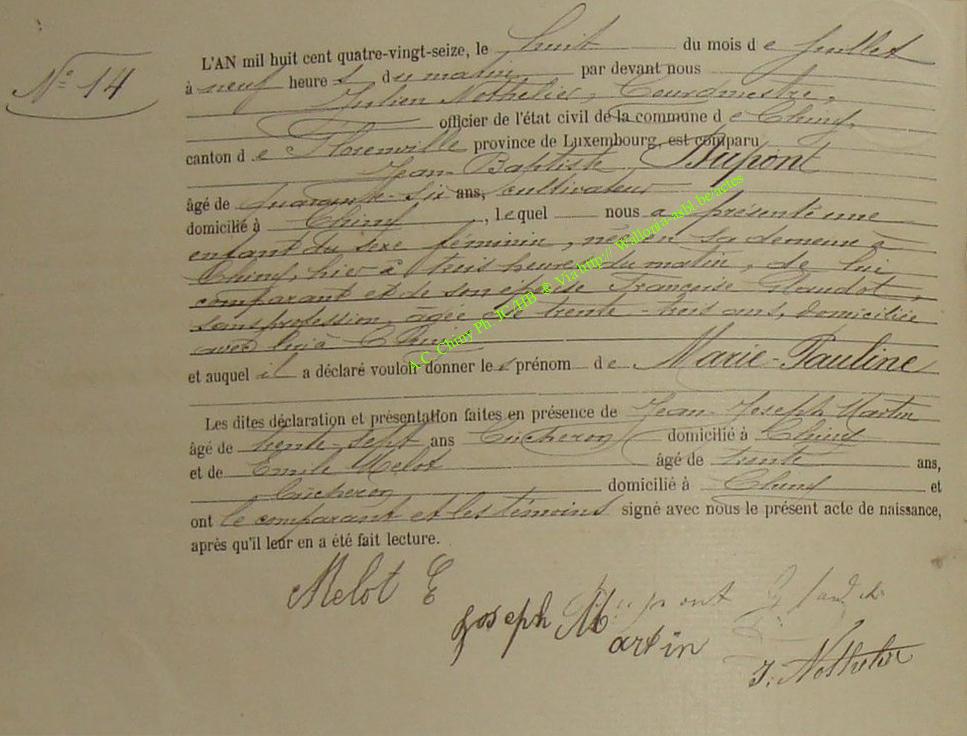 N° 14
L'AN mil huit cent quatre-vingt-seize, le huit du mois de Juillet
à neuf heures du matin par devant nous
Julien Nothelier, Bourgmestre,
officier de l'état civil de la commune de Chiny,
canton de Florenville province de Luxembourg, est comparu
Jean-Baptiste Dupont
âgé de quarante-six ans, cultivateur
domicilié à Chiny, lequel nous a présenté une
enfant du sexe féminin, née en sa demeure à
Chiny, hier à trois heures du matin, de lui
comparant et de son épouse Françoise
sans profession, agée de trente-trois ans, domiciliée
avec lui à Chiny
et auquel il a déclaré vouloir donner les prénom de Marie-Pauline
Les dites déclaration et présentation faites en présence de Jean-Joseph Martin
âgé de trente-sept ans bûcheron domicilié à Chiny
et de Emile Melot âgé de trente ans,
bûcheron domicilié à Chiny et
ont le comparant et les témoins signé avec nous le présent acte de naissance,
après qu'il leur en a été fait lecture.
Melot E
Joseph Martin
J. Nothelier
A.C. Chiny Ph. JC/HB © Via http:// Wallonia-asbl.be/actes